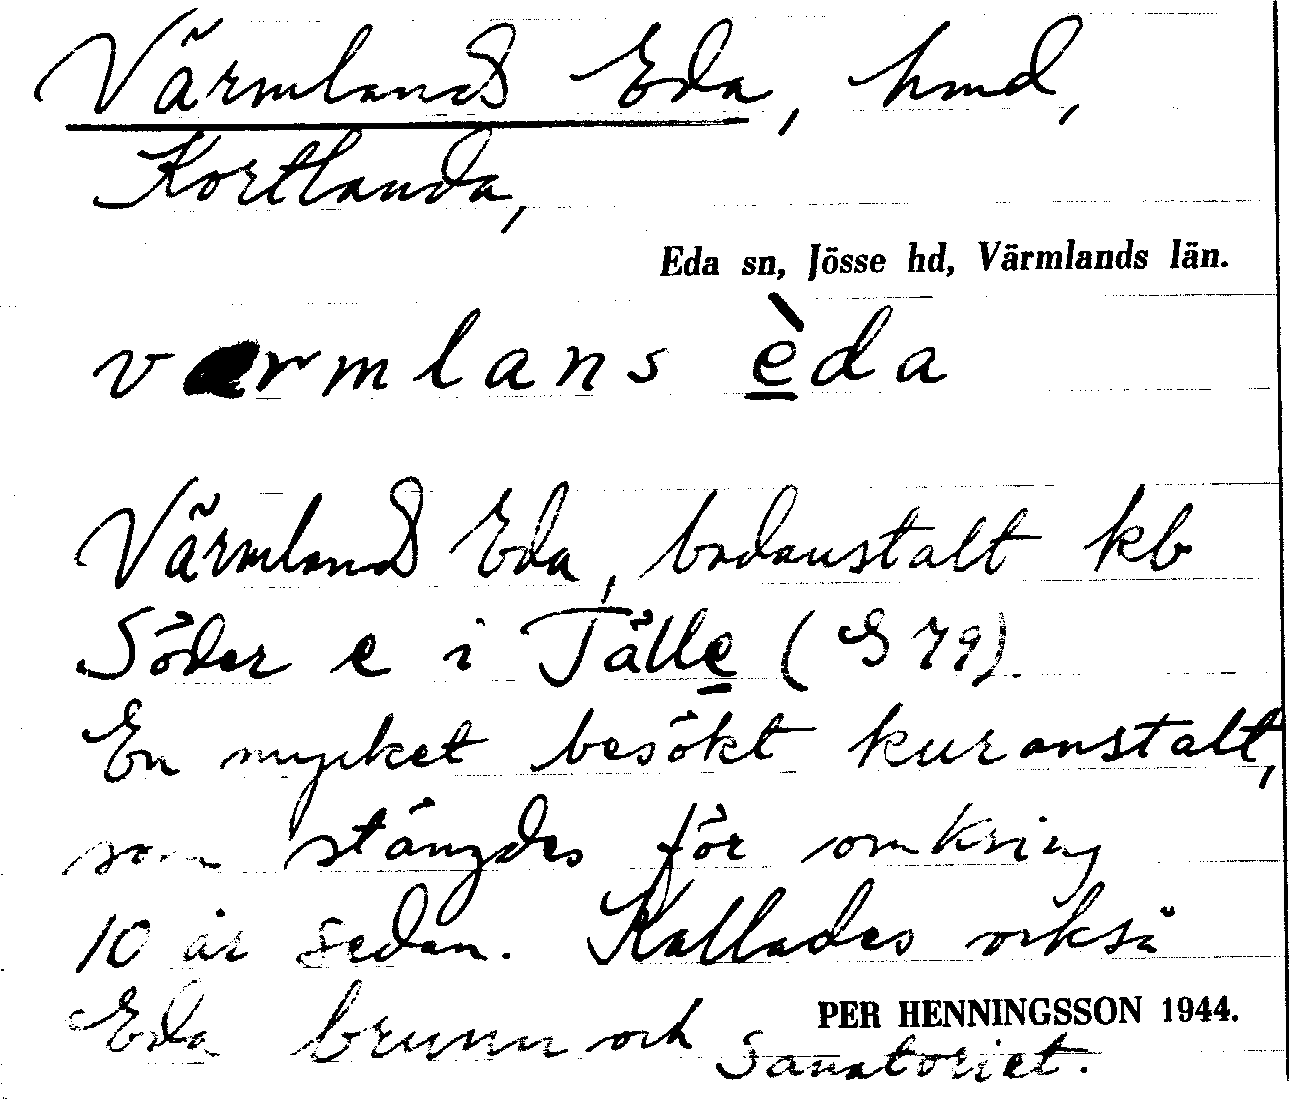 Värmlands Eda, hmd,
Kortlanda,
Eda sn, Jösse hd, Värmlands län.
varmlans èda
Värmlands Eda, badanstalt kb
Söder e i Tälle (S 79).
En mycket besökt kuranstalt,
som stängdes för omkring
10 år sedan. Kallades också
Eda brunn och Sanatoriet.
PER HENNINGSSON 1944.